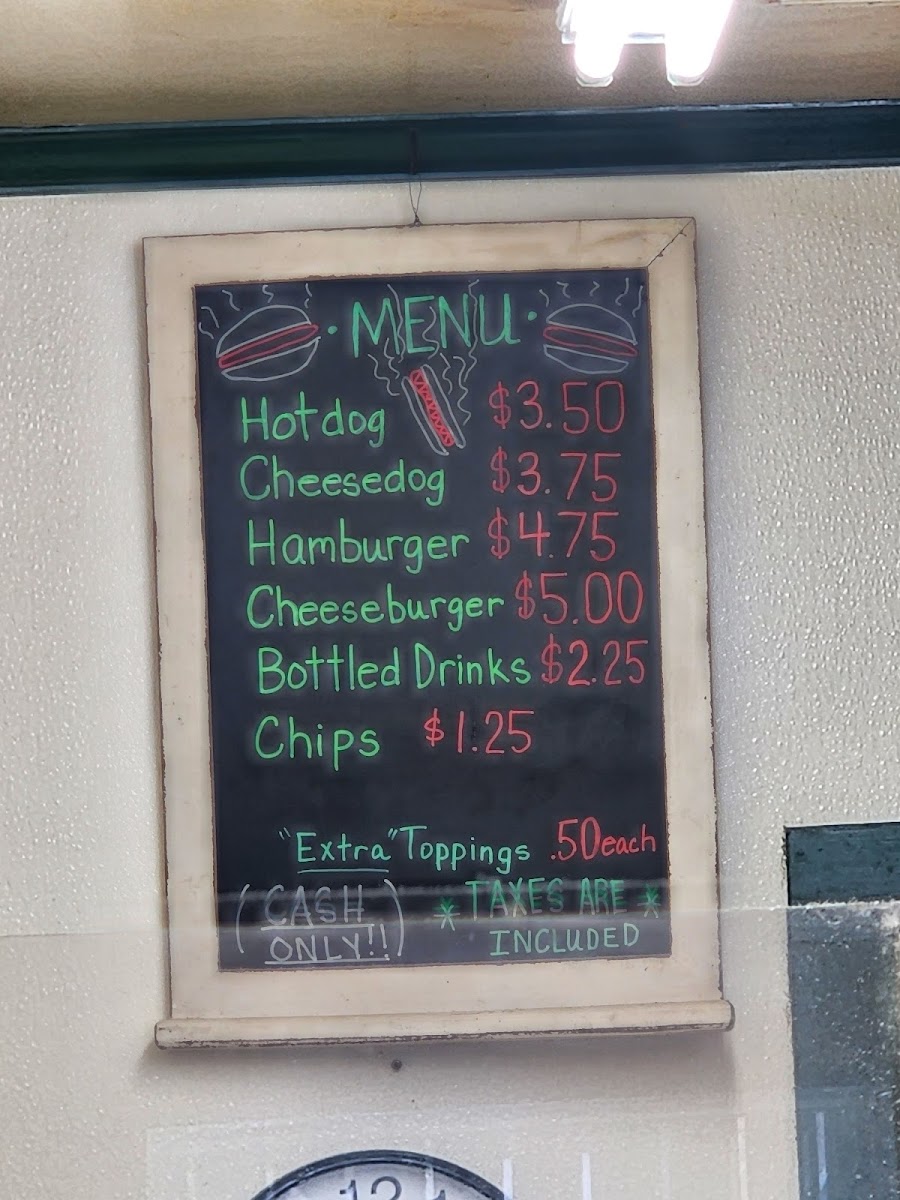 · MENU ·
Hotdog $3.50
Cheesedog $3.75
Hamburger $4.75
Cheeseburger $5.00
Bottled Drinks $2.25
Chips $1.25
"Extra" Toppings .50each
(CASH ONLY!!)
* TAXES ARE *
INCLUDED
12 1